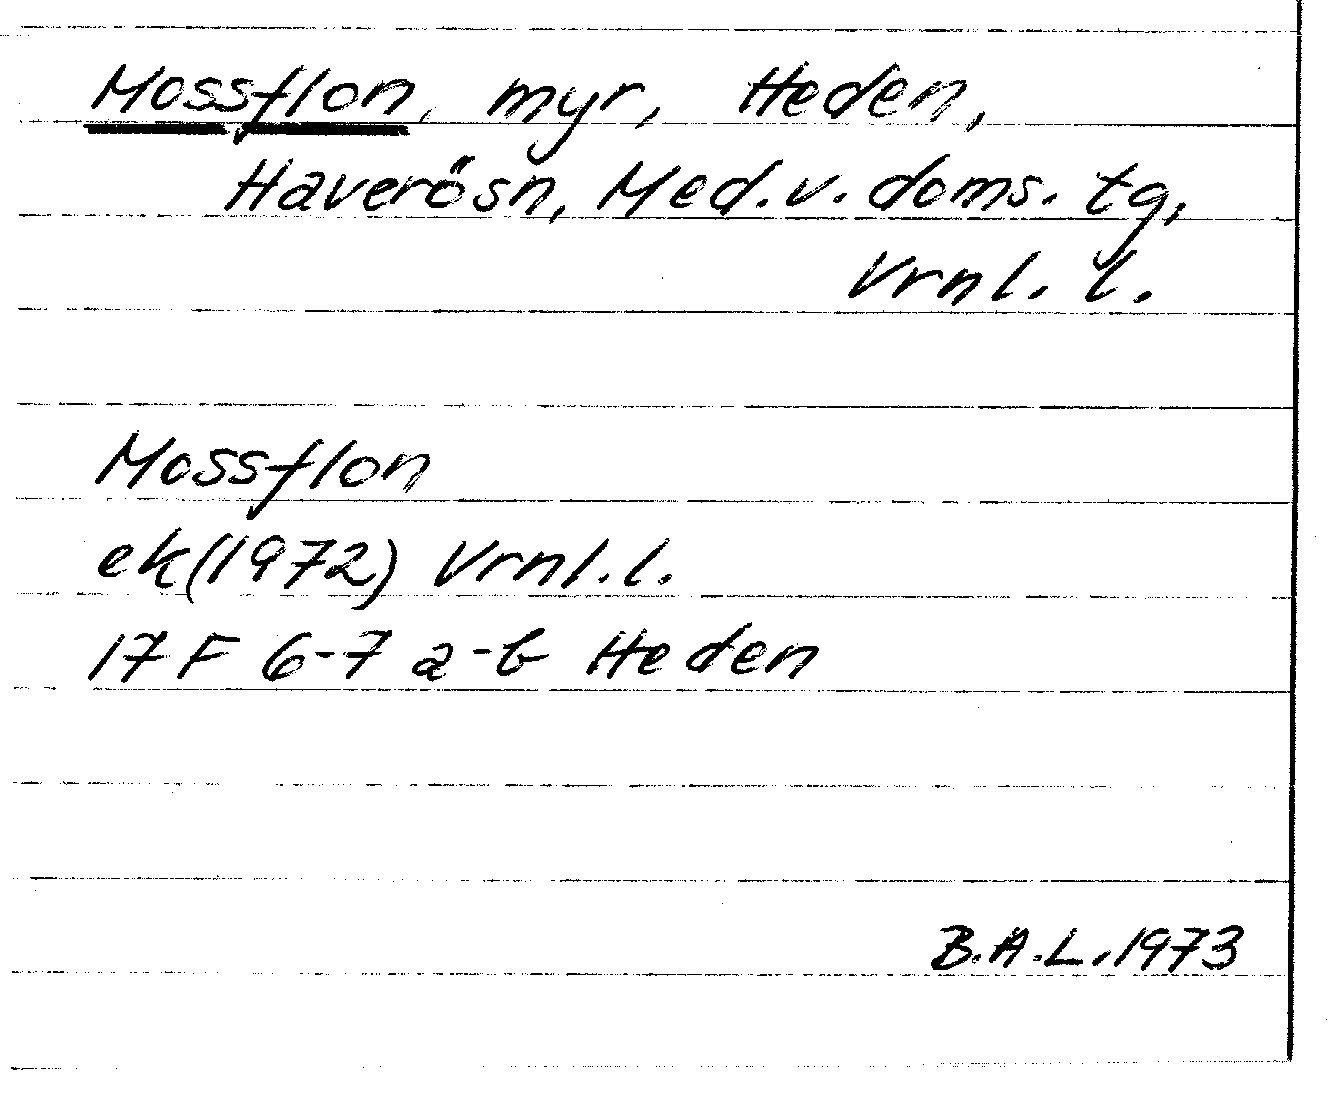 Mossflon, myr, Heden,
Haverösn, Med.v.doms.tg,
Vrnl. l.
Mossflon
ek(1972) Vrnl.l.
17 F 6-7 a-b Heden
B.A.L.1973